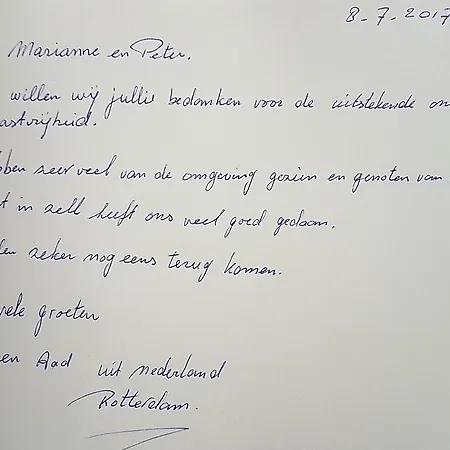 8-7-2017
Marianne en Peter.
willen wij jullie bedanken voor de uitstekende on
astvrijheid.
bben zeer veel van de omgeving gezien en genoten van
t in zelf heeft ons veel goed gedaan.
len zeker nog eens terug komen.
groeten
en Aad uit nederland
Rotterdam.